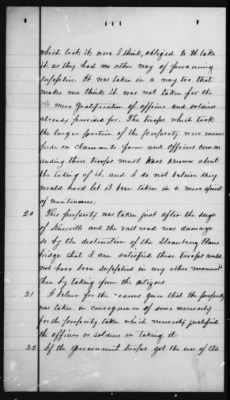 which took it, were I think, obliged to th take
it, as they had no other way of procuring
supplies. It was taken in a way too that
makes me think it was not taken for the
mere gratification of officers and soldiers
already provided for. The troops which took
the larger portion of the property were camped
on Claimants farm and officers comm
anding these troops must have known about
the taking of it, and I do not believe they
would have let it been taken in a mere spirit
of wantonness.
20 This property was taken just after the siege
of Knoxville and the rail road was damage
d by the destruction of the Strawberry Plains
bridge that I am satisfied these troops could
not have been supplied in any other manner
than by taking from the citizens
21 I believe for the reasons given that the property
was taken in consequence of some necessity
for the property taken which necessity justified
the officers or soldiers in taking it.
22 If the Government troops got the use of the